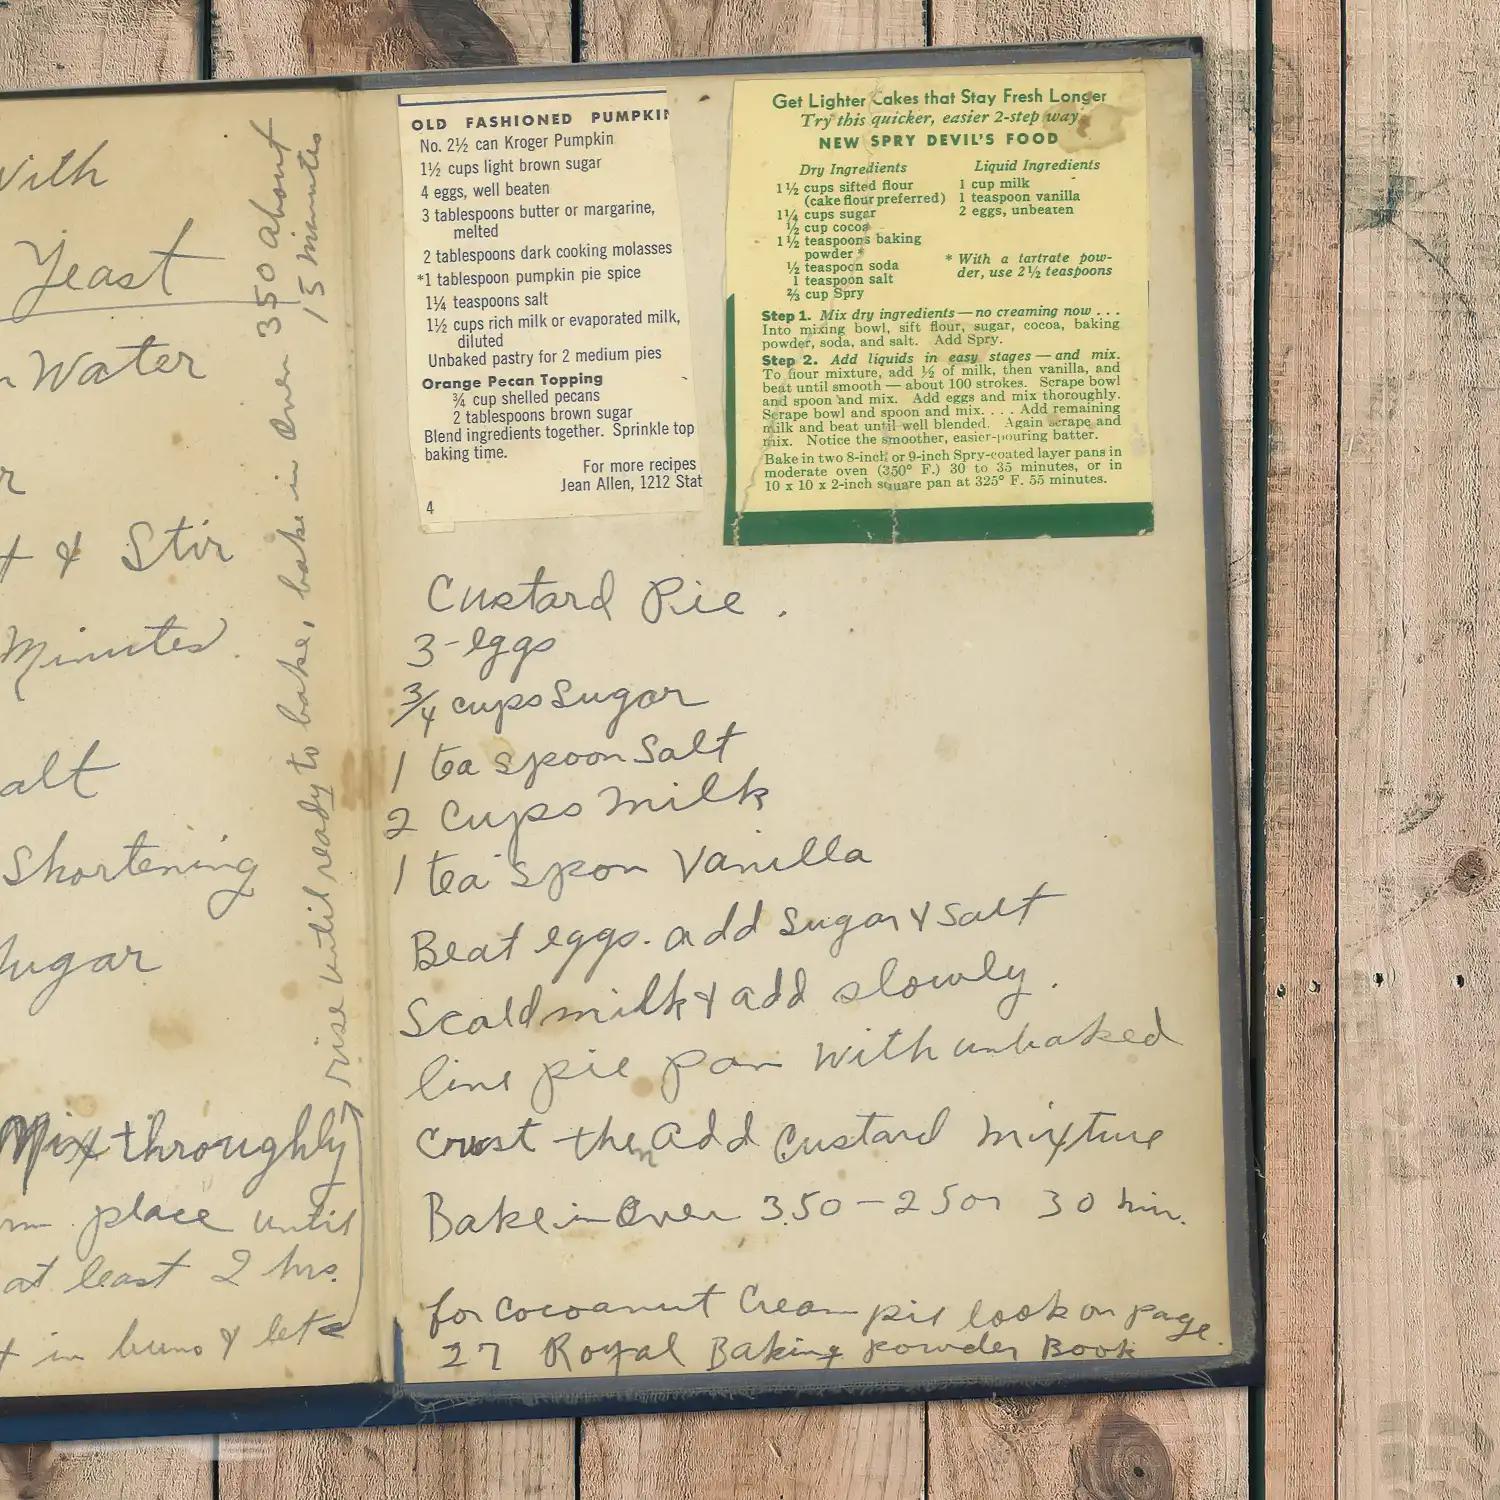 With
Yeast
Water
r
& Stir
Minutes.
alt
Shortening
Sugar
Mix throughly
place until
at least 2 hrs.
in buns & let
rise until ready to bake, bake in oven 350 about
15 minutes
OLD FASHIONED PUMPKIN
No. 2½ can Kroger Pumpkin
1½ cups light brown sugar
4 eggs, well beaten
3 tablespoons butter or margarine,
melted
2 tablespoons dark cooking molasses
*1 tablespoon pumpkin pie spice
1¼ teaspoons salt
1½ cups rich milk or evaporated milk,
diluted
Unbaked pastry for 2 medium pies
Orange Pecan Topping
¾ cup shelled pecans
2 tablespoons brown sugar
Blend ingredients together. Sprinkle top
baking time.
For more recipes
Jean Allen, 1212 Stat
4
Get Lighter Cakes that Stay Fresh Longer
Try this quicker, easier 2-step way
NEW SPRY DEVIL'S FOOD
Dry Ingredients
1½ cups sifted flour
(cake flour preferred)
1¼ cups sugar
½ cup cocoa
1½ teaspoons baking
powder*
½ teaspoon soda
1 teaspoon salt
⅔ cup Spry
Liquid Ingredients
1 cup milk
1 teaspoon vanilla
2 eggs, unbeaten
* With a tartrate pow-
der, use 2½ teaspoons
Step 1. Mix dry ingredients—no creaming now . . .
Into mixing bowl, sift flour, sugar, cocoa, baking
powder, soda, and salt. Add Spry.
Step 2. Add liquids in easy stages—and mix.
To flour mixture, add ½ of milk, then vanilla, and
beat until smooth — about 100 strokes. Scrape bowl
and spoon and mix. Add eggs and mix thoroughly.
Scrape bowl and spoon and mix. . . . Add remaining
milk and beat until well blended. Again scrape and
mix. Notice the smoother, easier-pouring batter.
Bake in two 8-inch or 9-inch Spry-coated layer pans in
moderate oven (350° F.) 30 to 35 minutes, or in
10 x 10 x 2-inch square pan at 325° F. 55 minutes.
Custard Pie.
3-eggs
3/4 cups Sugar
1 tea spoon Salt
2 Cups milk
1 tea spon Vanilla
Beat eggs. add sugar & salt
Scald milk & add slowly.
line pie pan with unbaked
crust then add Custard mixture
Bake in Oven 350-25 or 30 min.
for Cocoanut Cream pie look on page.
27 Royal Baking powder Book